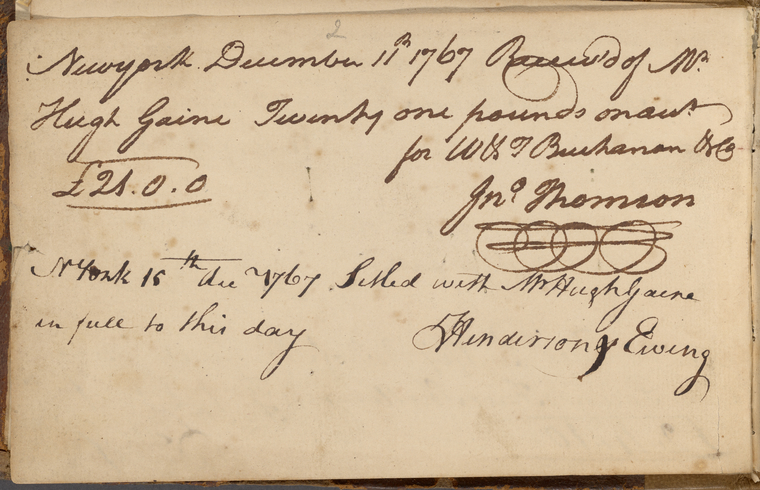 2
Newyork December 11th 1767 Receiv'd of Mr
Hugh Gaine Twenty one pounds on acct
for W & T Buchanan & Co
£21.0.0
Jno Thomson
N York 15th dec 1767 Setled with Mr Hugh Gaine
in full to this day
Henderson & Ewing